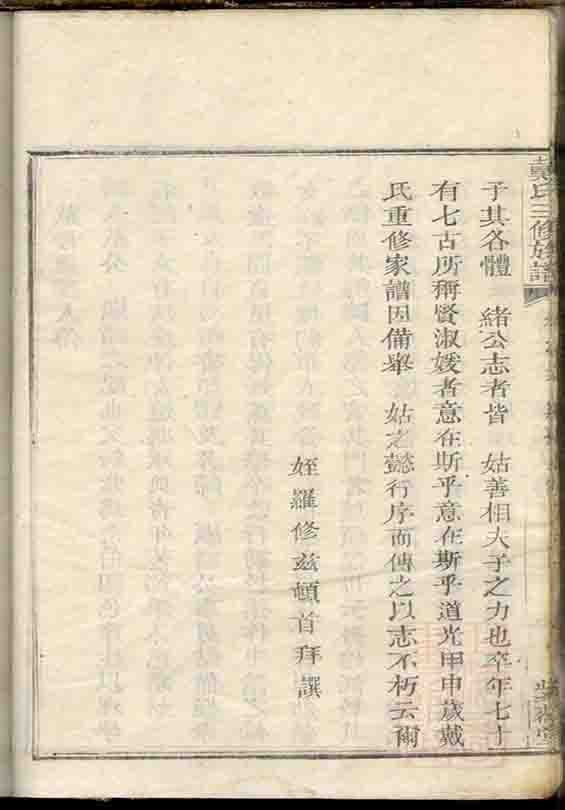 戴氏三修族譜
于其各體 緒公志者皆 姑善相夫子之力也卒年七十
有七古所稱賢淑媛者意在斯乎意在斯乎道光甲申歲戴
氏重修家譜因備舉 姑之懿行序而傳之以志不朽云爾
姪羅修玆頓首拜譔